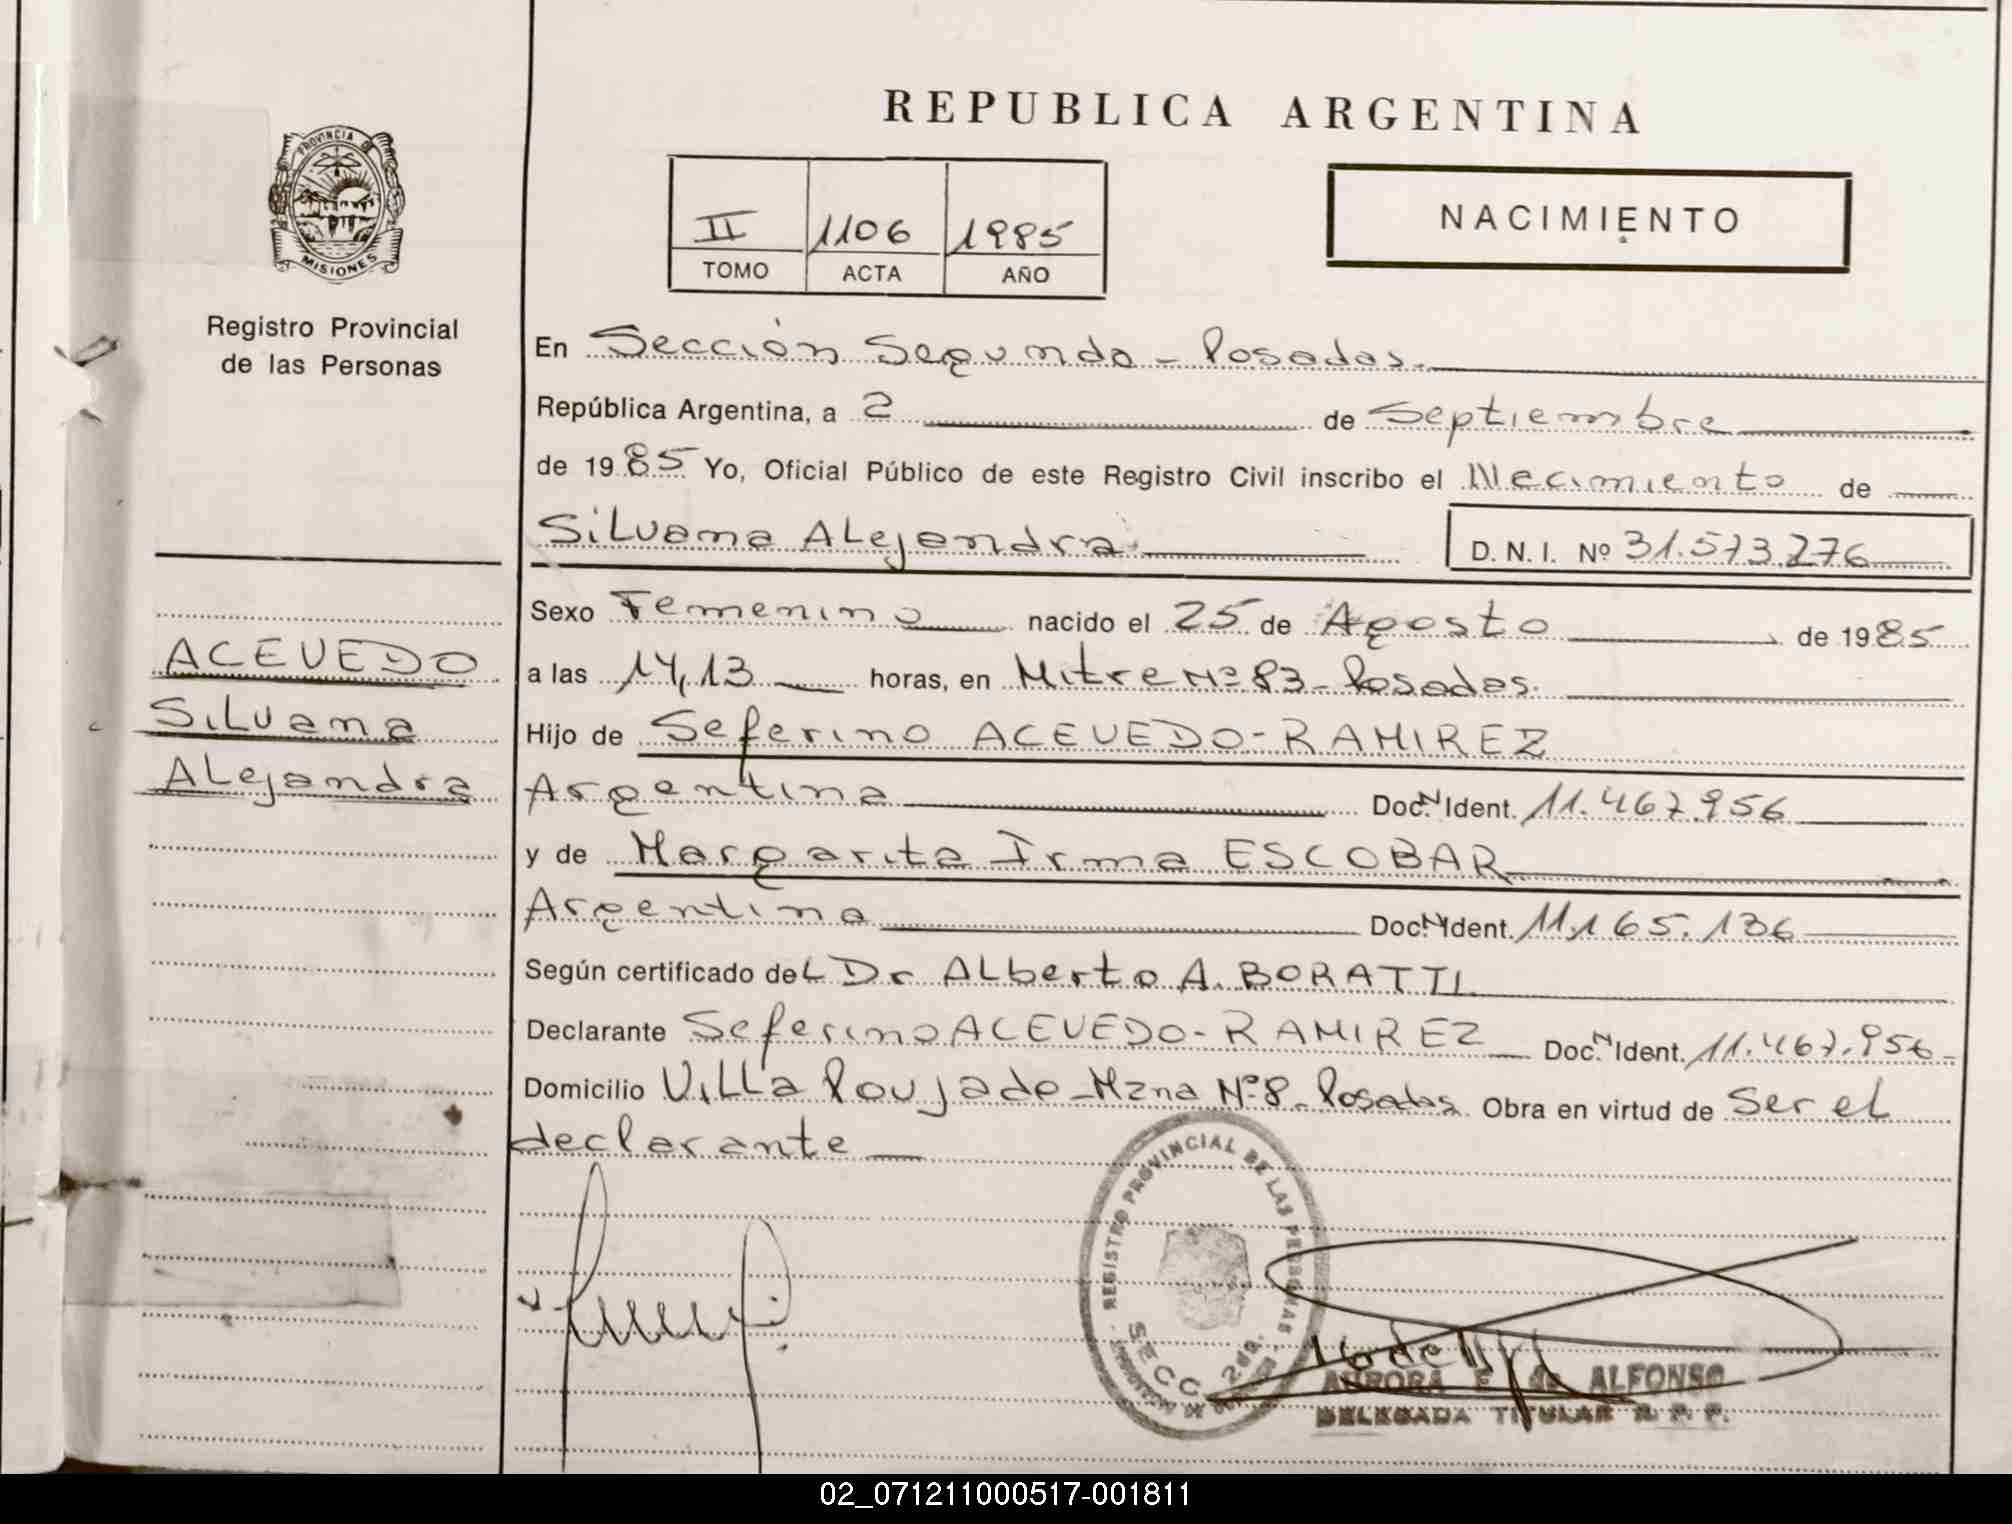 REPUBLICA ARGENTINA
PROVINCIA DE
MISIONES
Registro Provincial
de las Personas
II 1106 1985
TOMO ACTA AÑO
NACIMIENTO
En Sección Segunda - Posadas.
República Argentina, a 2 de Septiembre
de 1985 Yo, Oficial Público de este Registro Civil inscribo el Nacimiento de
Silvana Alejandra D. N. I. Nº 31.573.276
ACEVEDO
Silvana
Alejandra
Sexo Femenino nacido el 25 de Agosto de 1985
a las 14,13 horas, en Mitre Nº 83 - Posadas.
Hijo de Seferino ACEVEDO-RAMIREZ
Argentina Doc. N Ident. 11.467.956
y de Margarita Irma ESCOBAR
Argentina Doc. N Ident. 11.165.136
Según certificado del Dr. Alberto A. BORATTI
Declarante Seferino ACEVEDO-RAMIREZ Doc. N Ident. 11.467.956
Domicilio Villa Poujade - Mzna Nº 8 - Posadas Obra en virtud de Ser el
declarante
REGISTRO PROVINCIAL DE LAS PERSONAS
SECC. 2da.
AURORA E. de ALFONSO
DELEGADA TITULAR R. P. P.
02_071211000517-001811